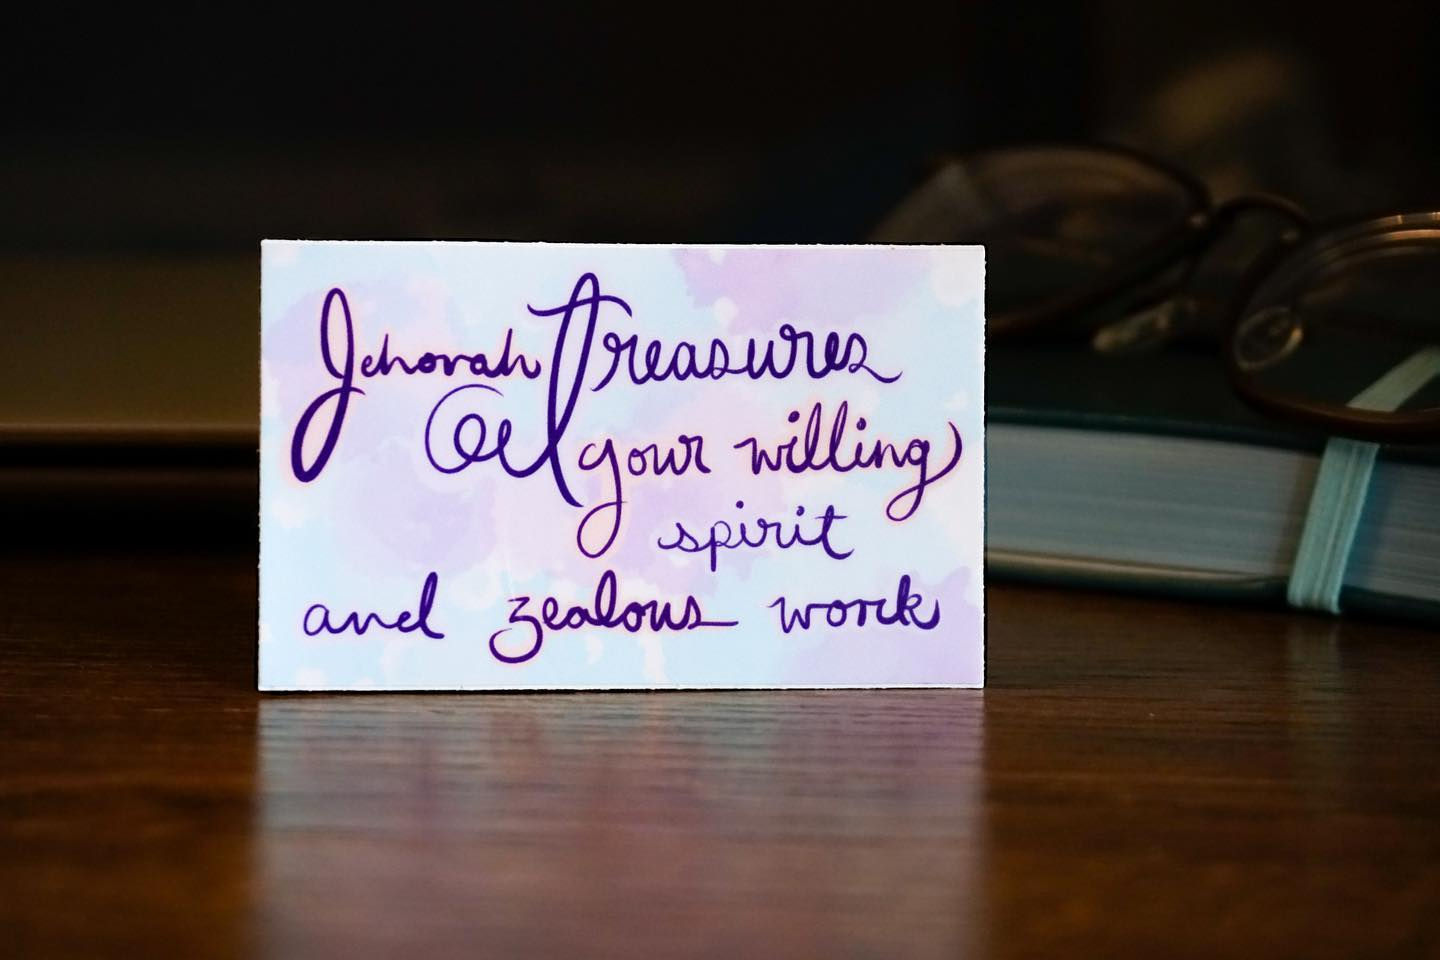 Jehovah Treasures
all your willing
spirit
and zealous work